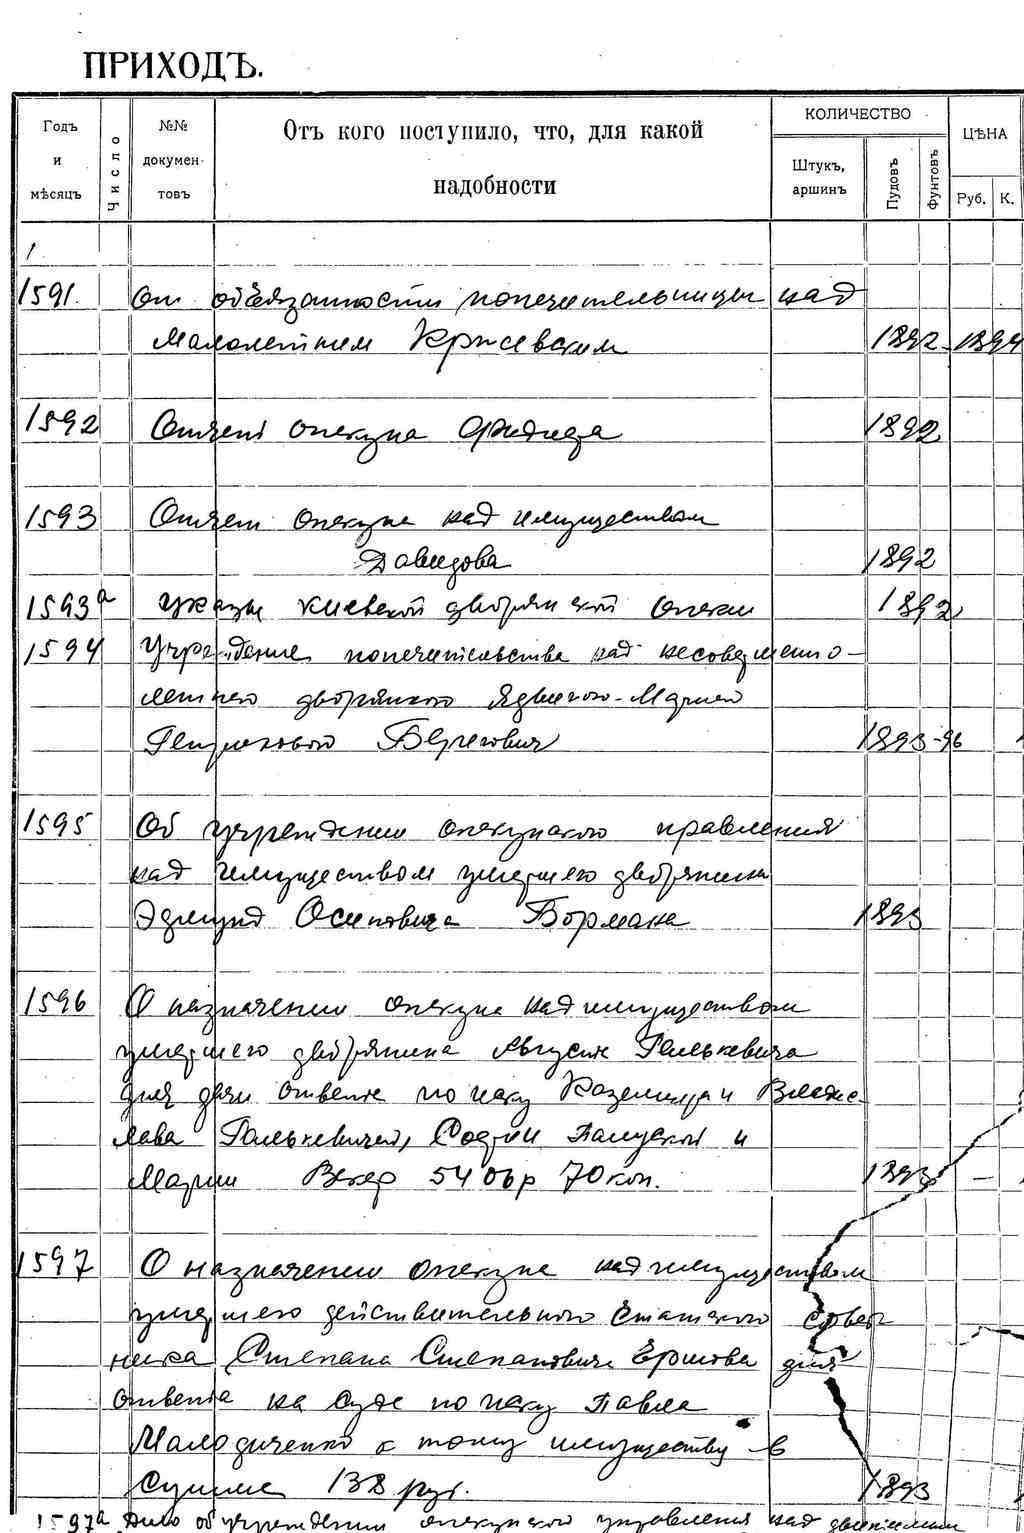 ПРИХОДЪ.
Годъ и мѣсяцъ
Число
№№ докумен-товъ
Отъ кого поступило, что, для какой надобности
КОЛИЧЕСТВО
Штукъ, аршинъ
Пудовъ
Фунтовъ
ЦѢНА
Руб.
К.
1591. Об обязанности попечительницы над
малолетним Крисевским 1892-1894
1592 Отчет опекуна 1892
1593 Отчет опекуна над имуществом
Давидова 1892
1593а Указы Киевской дворянской опеки 1892
1594 Учреждение попечительства над несовершенно-
летнего дворянкою Ядвигою-Мариею
Генриховою 1893-96
1595 Об учреждении опекунского правления
над имуществом умершего дворянина
Эдмунд Осиповича Бормана 1893
1596 О назначении опекуна над имуществом
умершего дворянина Август Галькевича
для дачи ответа по иску Каземира и Владис-
лава Галькевичей, Софии и
Марии Векер 5406р 70 коп. 1893
1597 О назначении опекуна над имуществом
умершего действительного статского совет
ника Степана Степановича Ершова для
ответа на суде по иску Павла
Молодиченко к тому имуществу в
сумме 138 руб. 1893
1597а Дело об учреждении опекунского управления над